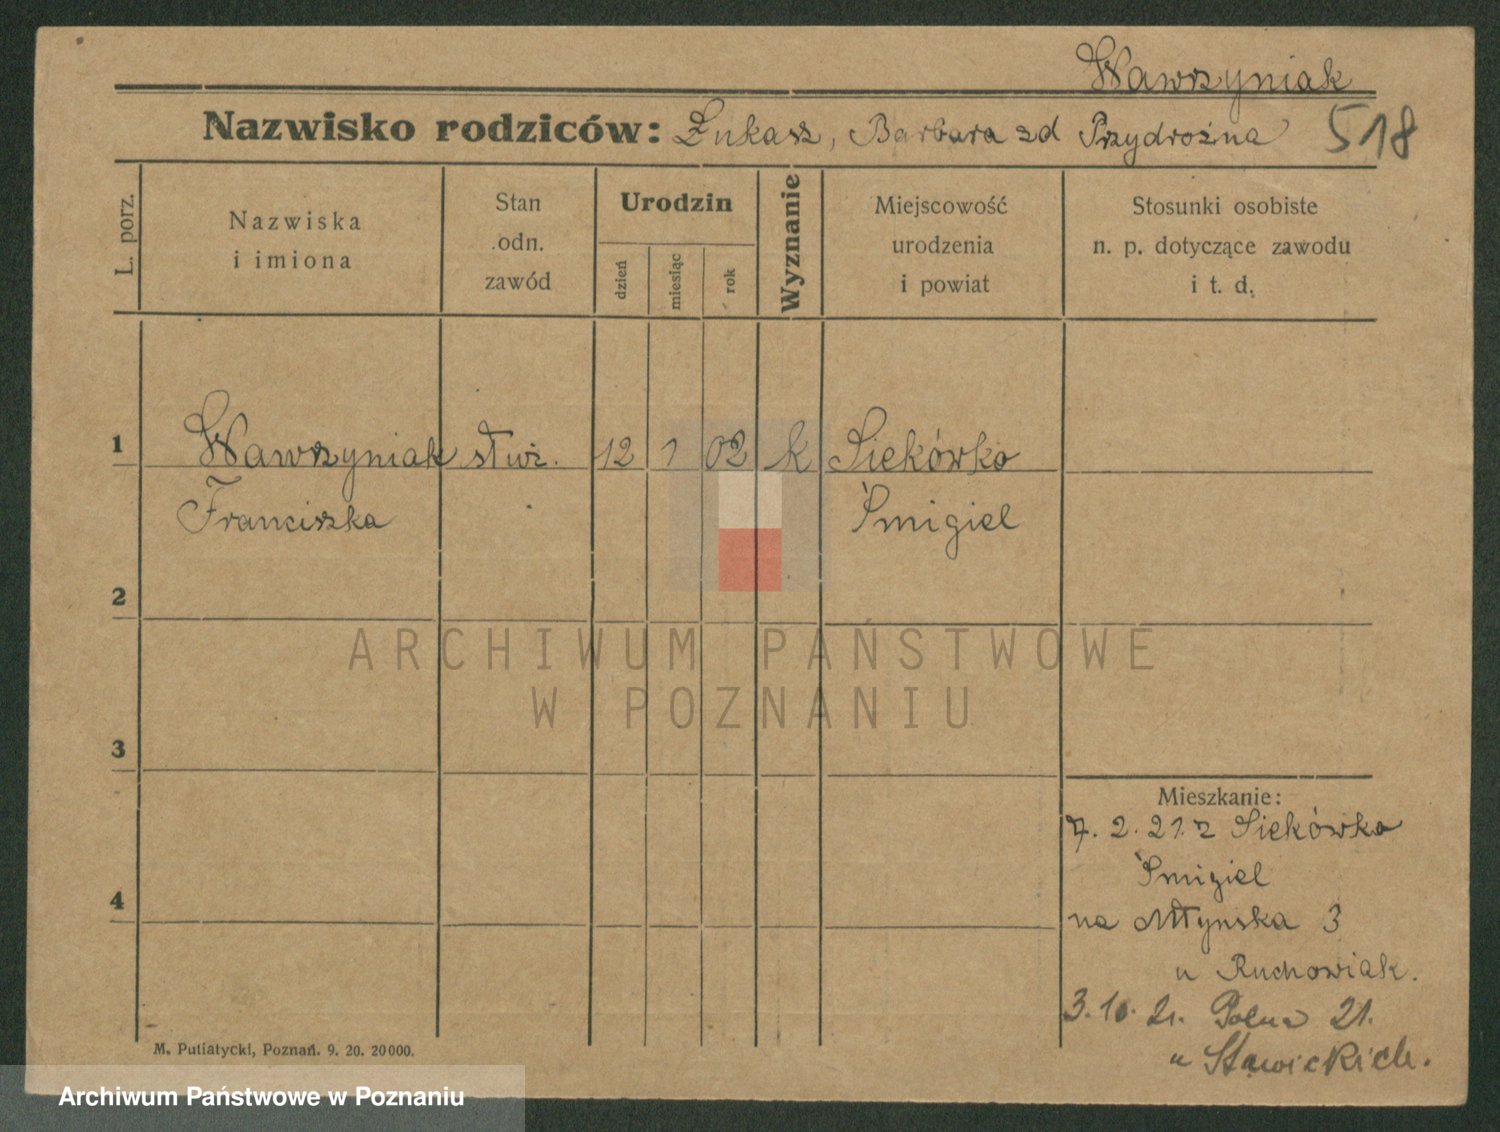 Wawrzyniak
Nazwisko rodziców: Łukasz, Barbara zd Przydrożna 518
L. porz.
Nazwiska
i imiona
Stan
odn.
zawód
Urodzin
dzień
miesiąc
rok
Wyznanie
Miejscowość
urodzenia
i powiat
Stosunki osobiste
n. p. dotyczące zawodu
i t. d.
1 Wawrzyniak służ. 12 1 02 k Siekówko
Franciszka Śmigiel
2
ARCHIWUM PAŃSTWOWE
W POZNANIU
3
Mieszkanie:
7. 2. 21. z Siekówko
Śmigiel
4
na Młyńska 3
u Ruchowiak.
3. 10. 21. Polna 21.
u Stawickich.
M. Putiatycki, Poznań. 9. 20. 20000.
Archiwum Państwowe w Poznaniu